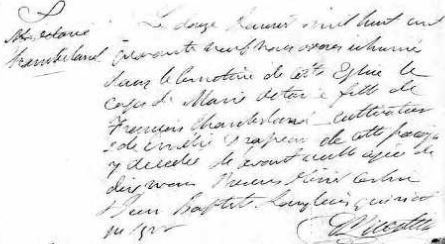 S
Marie Octavie
Chamberland
Le douze Janvier mil huit cent
quarante neuf nous avons inhumé
dans le cimetière de cette Eglise le
corps de Marie Octavie fille de
François Chamberland cultivateur
& de Emélie Drapeau de cette paroisse
y décédée le avant veille agée de
dix mois
& Jean Baptiste Langlois qui n'ont